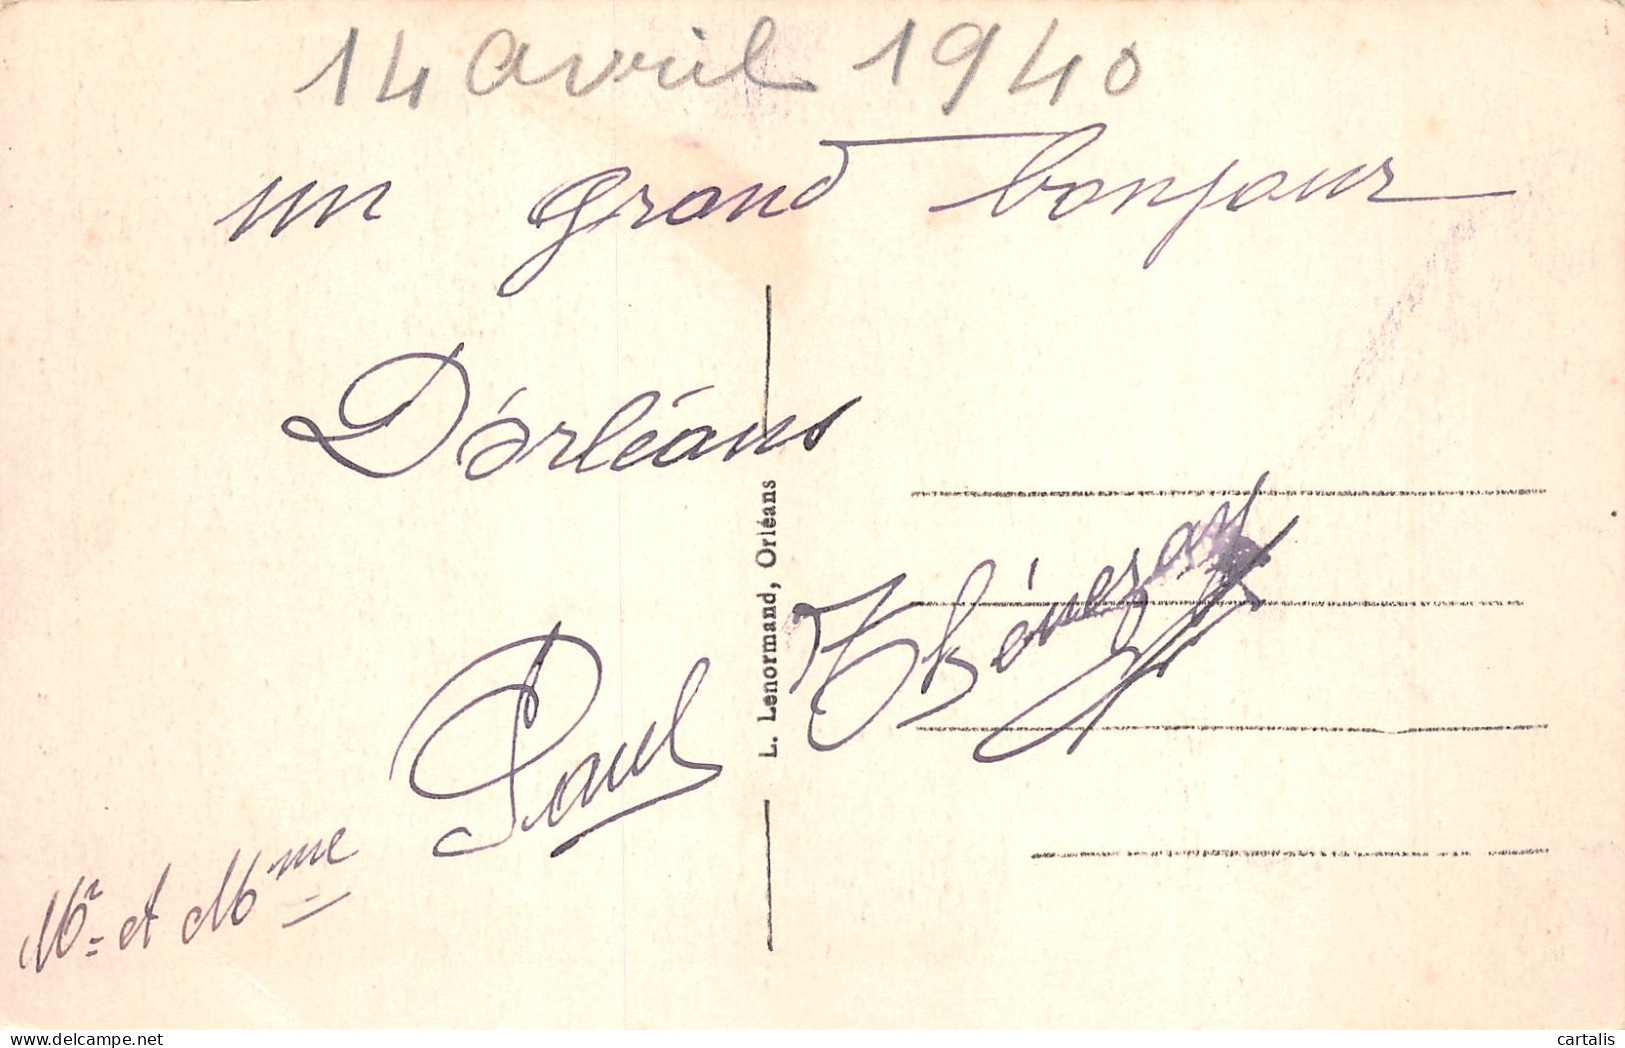 14 avril 1940
un grand bonjour
D'orléans
L. Lenormand, Orléans
Mr et Mme Paul Thénezay
cartalis
delcampe.net